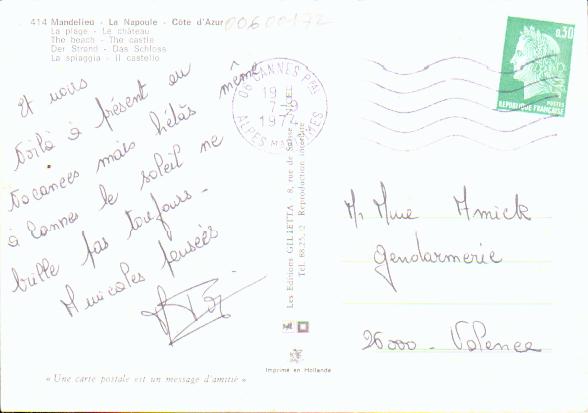 414 Mandelieu - La Napoule - Côte d'Azur
La plage - Le château
The beach - The castle
Der Strand - Das Schloss
La spiaggia - Il castello
00600172
Et nous
voilà à présent en même
vacances mais hélas
à Cannes le soleil ne
brille pas toujours -
Amicales pensées
06 CANNES PPAL
19 H
7-9
1972
ALPES MARITIMES
0,30
POSTES
REPUBLIQUE FRANÇAISE
Les Editions GILLETTA - 8, rue de
Tél. Reproduction interdite
M. Mme Amick
Gendarmerie
26000 - Valence
Imprimé en Hollande
« Une carte postale est un message d'amitié »